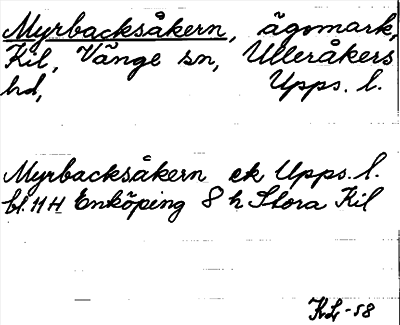 Myrbacksåkern, ägomark,
Kil, Vänge sn, Ulleråkers
hd, Upps. l.
Myrbacksåkern ek Upps. l.
bl. 11 H Enköping 8 h Stora Kil